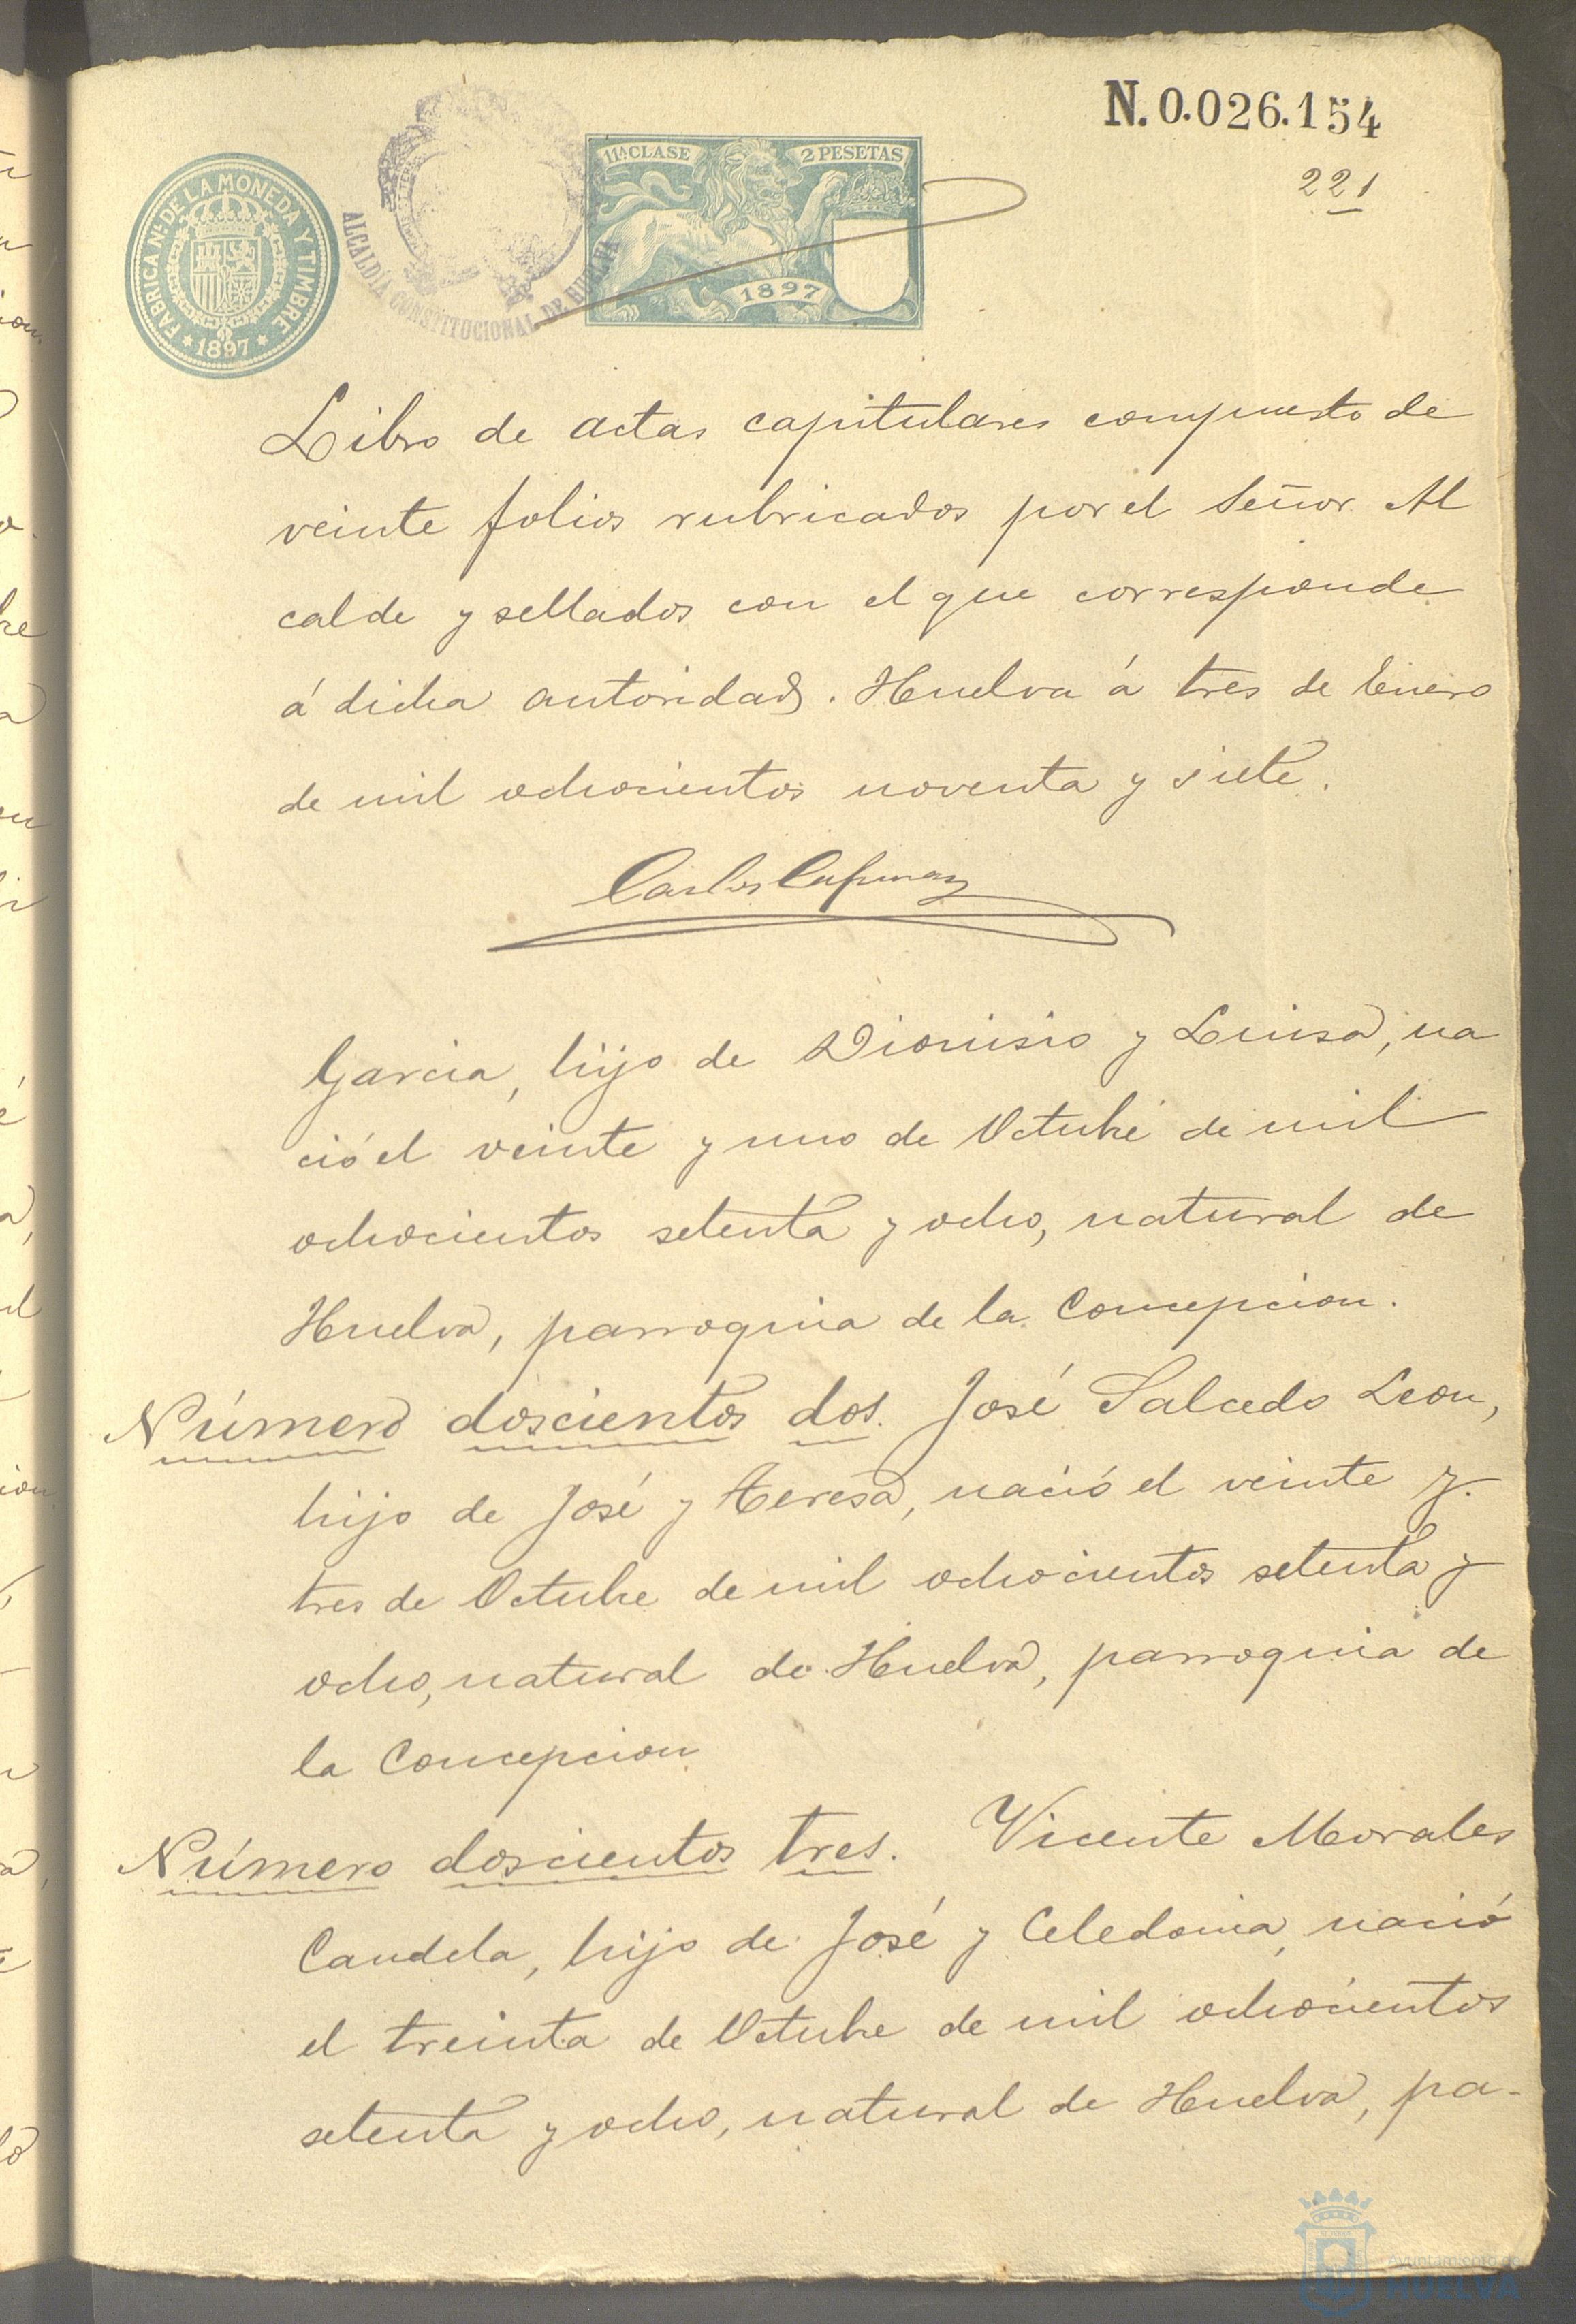 N. 0.026.154
221
FABRICA Nal DE LA MONEDA Y TIMBRE
* 1897 *
ALCALDÍA CONSTITUCIONAL DE HUELVA
11ª CLASE 2 PESETAS
1897
Libro de actas capitulares compuesto de
veinte folios rubricados por el Señor Al
calde y sellados con el que corresponde
á dicha autoridad. Huelva á tres de Enero
de mil ochocientos noventa y siete.
Carlos
Garcia, hijo de Dionisio y Luisa, na
ció el veinte y uno de Octubre de mil
ochocientos setenta y ocho, natural de
Huelva, parroquia de la Concepcion.
Número doscientos dos. José Salcedo Leon,
hijo de José y Teresa, nació el veinte y
tres de Octubre de mil ochocientos setenta y
ocho, natural de Huelva, parroquia de
la Concepcion
Número doscientos tres. Vicente Morales
Candela, hijo de José y Celedonia, nació
el treinta de Octubre de mil ochocientos
setenta y ocho, natural de Huelva, pa-
Ayuntamiento de
HUELVA